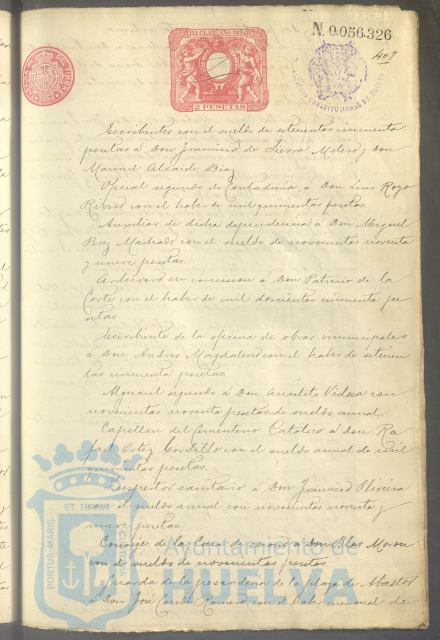 N. 0.056.326
407
11ª CLASE AÑO 1894
2 PESETAS
Escribientes con el sueldo de setecientas cincuenta
pesetas á Don Francisco de Sierra Melero y Don
Manuel Alcaide Diaz
Oficial segundo de Contaduria á Don Luis Rojo
con el haber de mil quinientas pesetas.
Auxiliar de dicha dependencia á Don Miguel
Machado con el sueldo de novecientas noventa
y nueve pesetas.
Archivero en comision á Don Patricio de la
Corte con el haber de mil doscientas cincuenta pe
setas
Escribiente de la oficina de obras municipales
á Don Andres Magdaleno con el haber de setecien
tas cincuenta pesetas.
Alguacil segundo á Don Anacleto con
novecientas noventa pesetas de sueldo anual.
Capellan del Cementerio Católico á Don Ra
fael Ortiz Gordillo con el sueldo anual de mil
quinientas pesetas.
Inspector sanitario á Don Francisco Oliveira
con el sueldo anual con novecientas noventa y
nueve pesetas.
Conserje de la Casa de á Don Blas Moron
con el sueldo de novecientas pesetas.
Guarda de la pescaderia de la plaza de Abastos
á Don José Conde Romero con el haber mensual de
PORTUS MARIS
ET TERRE
Ayuntamiento de
HUELVA